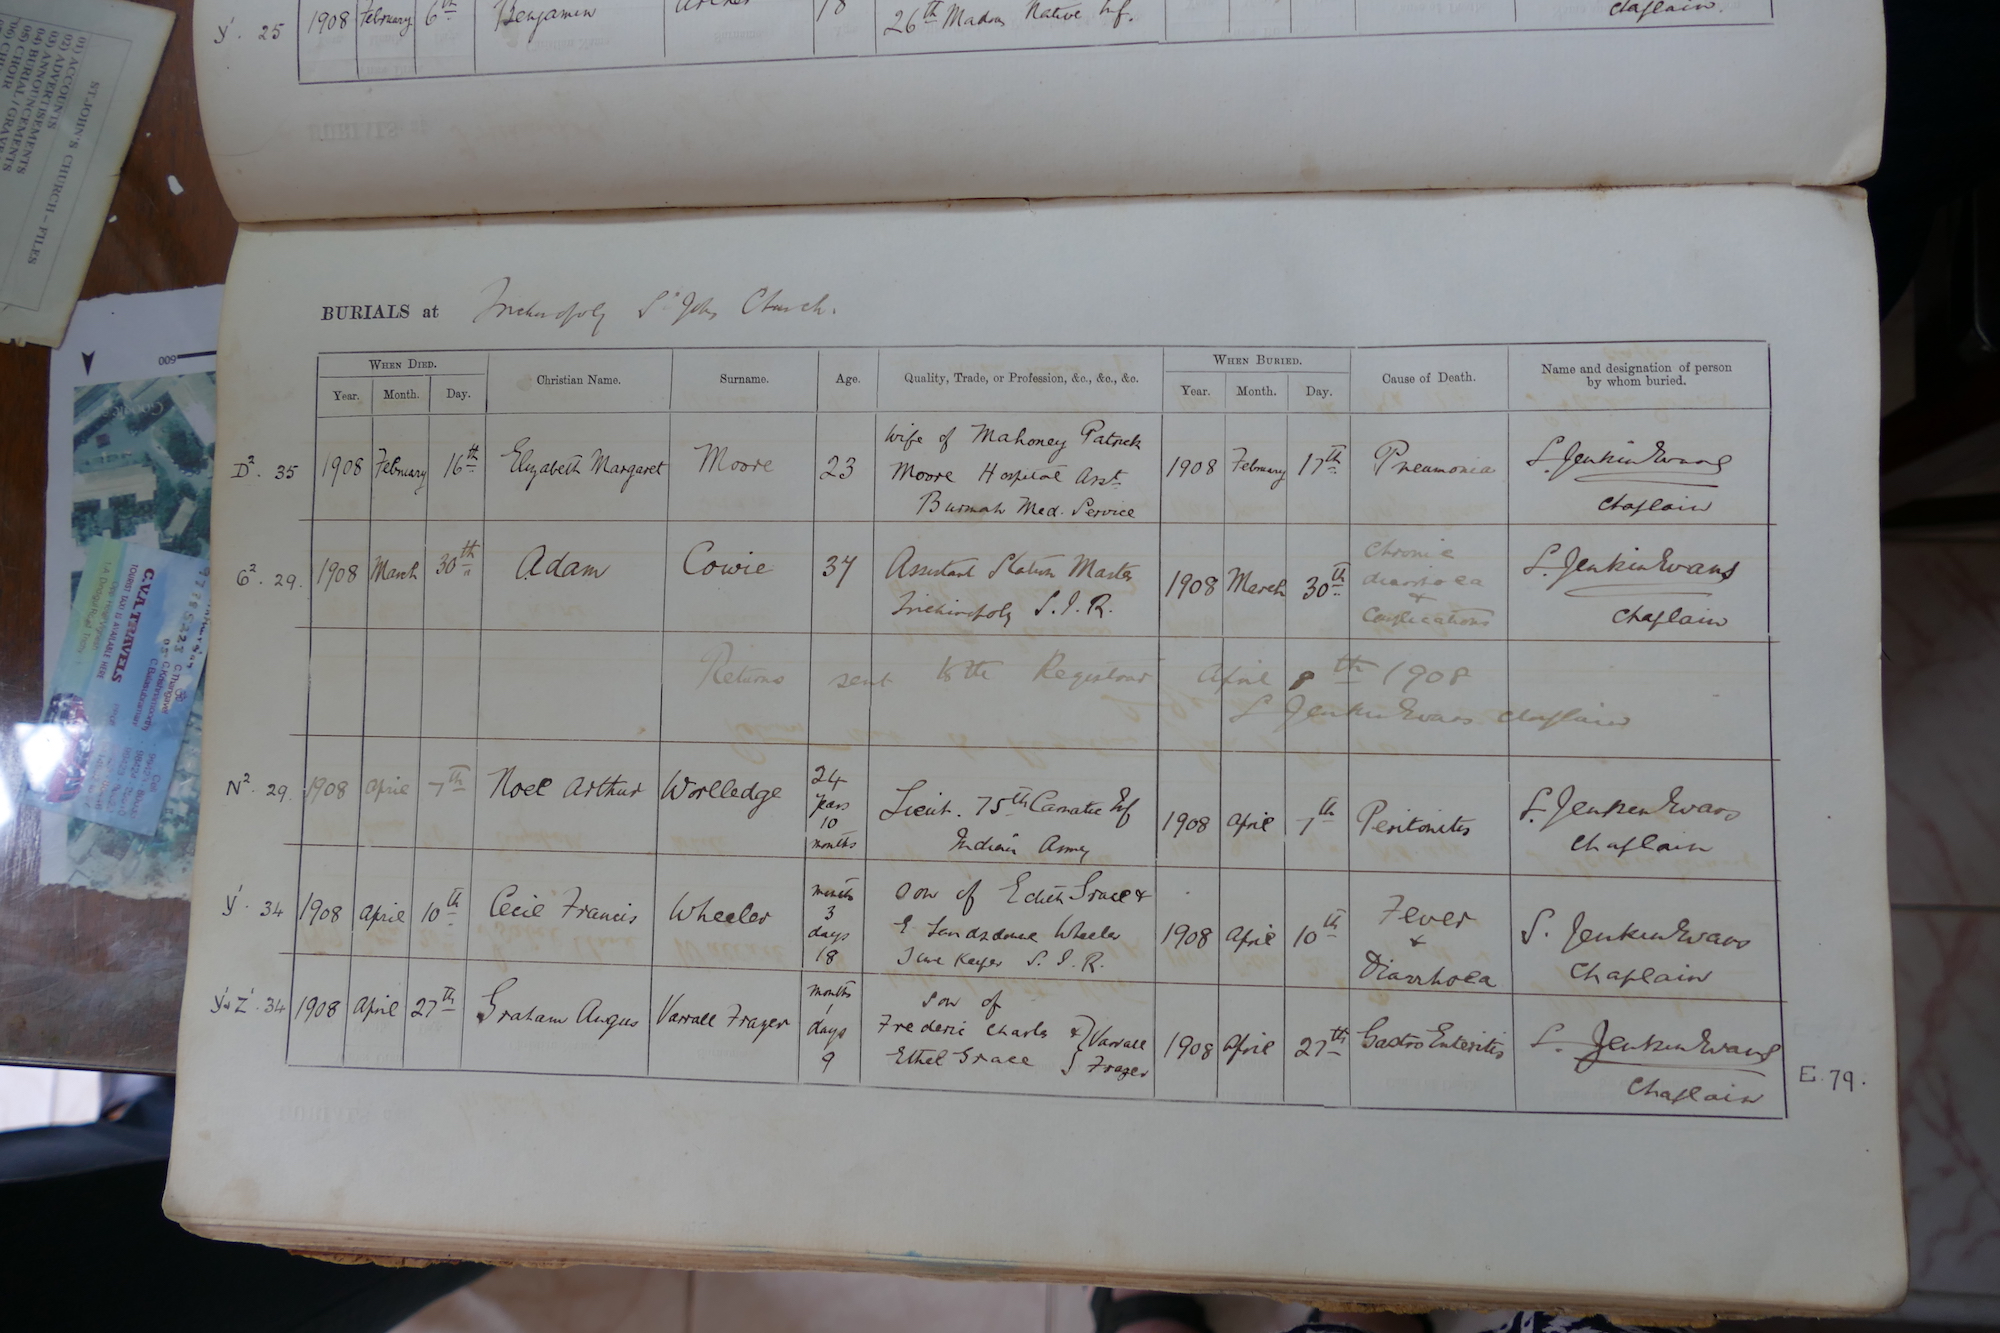 ST. JOHN'S CHURCH - FILES
01) ACCOUNTS
02) ADVERTISEMENTS
03) ANNOUNCEMENTS
04) BURIAL / GRAVE
05) CHOIR
C.V.A TRAVELS
TOURIST TAXI IS AVAILABLE HERE
009
Y1. 25 1908 February 6th Benjamin 18 26th Madras Native Inf. Chaplain.
BURIALS at Trichinopoly St John Church.
WHEN DIED. Christian Name. Surname. Age. Quality, Trade, or Profession, &c., &c., &c. WHEN BURIED. Cause of Death. Name and designation of person by whom buried.
Year. Month. Day. Year. Month. Day.
D2. 35 1908 February 16th Elizabeth Margaret Moore 23 Wife of Mahoney Patrick 1908 February 17th Pneumonia S. Jenkin Evans
Moore Hospital Asst.
Burmah Med. Service Chaplain
G2. 29. 1908 March 30th Adam Cowie 37 Assistant Station Master 1908 March 30th Chronic diarrhoea & Complications S. Jenkin Evans
Trichinopoly S. I. R. Chaplain
Returns sent to the Registrar April 8th 1908
S Jenkin Evans Chaplain
N2. 29. 1908 April 7th Noel Arthur Worlledge 24 years 10 months Lieut. 75th Carnatic Inf 1908 April 7th Peritonitis S. Jenkin Evans
Indian Army Chaplain
Y1. 34 1908 April 10th Cecil Francis Wheeler months 3 days 18 Son of Edith Grace & 1908 April 10th Fever & Diarrhoea S. Jenkin Evans
E Landsdowne Wheeler
Time Keeper S. I. R. Chaplain
Y1 & Z1. 34 1908 April 27th Graham Angus Varrall Frazer months 1 days 9 Son of
Frederic Charles & Varrall 1908 April 27th Gastro Enteritis S. Jenkin Evans
Ethel Grace Frazer Chaplain
E. 79.